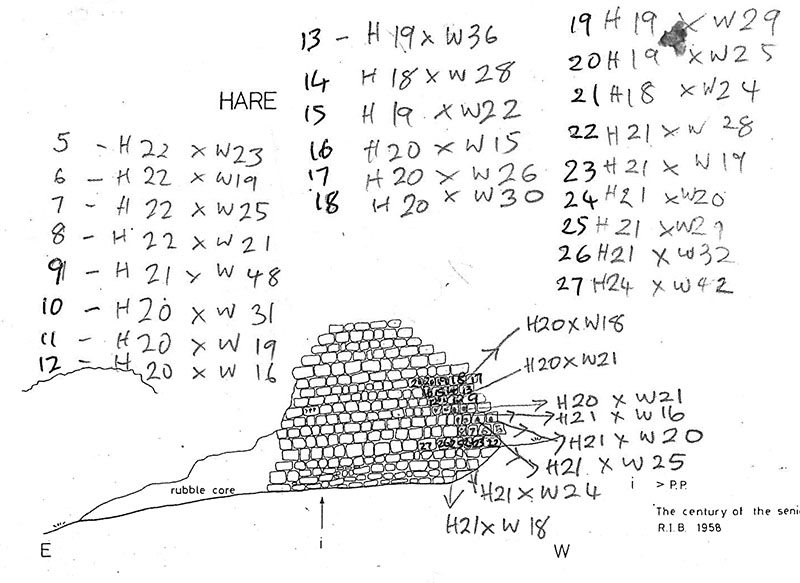 HARE
5 - H 22 x W23
6 - H 22 x W19
7 - H 22 x W25
8 - H 22 x W 21
9 - H 21 x W 48
10 - H 20 x W 31
11 - H 20 x W 19
12 - H 20 x W 16
13 - H 19 x W36
14 H 18 x W 28
15 H 19 x W22
16 H20 x W15
17 H20 x W26
18 H20 x W30
19 H 19 x W29
20 H 19 x W25
21 H18 x W24
22 H21 x W 28
23 H21 x W 19
24 H21 x W20
25 H21 x W29
26 H21 x W32
27 H24 x W42
H20 x W18
H20 x W21
H20 x W21
H21 x W16
H21 x W20
H21 x W25
H21 x W24
H21 x W 18
27 26 25 24 23 22
rubble core
i
E
W
i > P.P.
The century of the seni
R.I.B. 1958